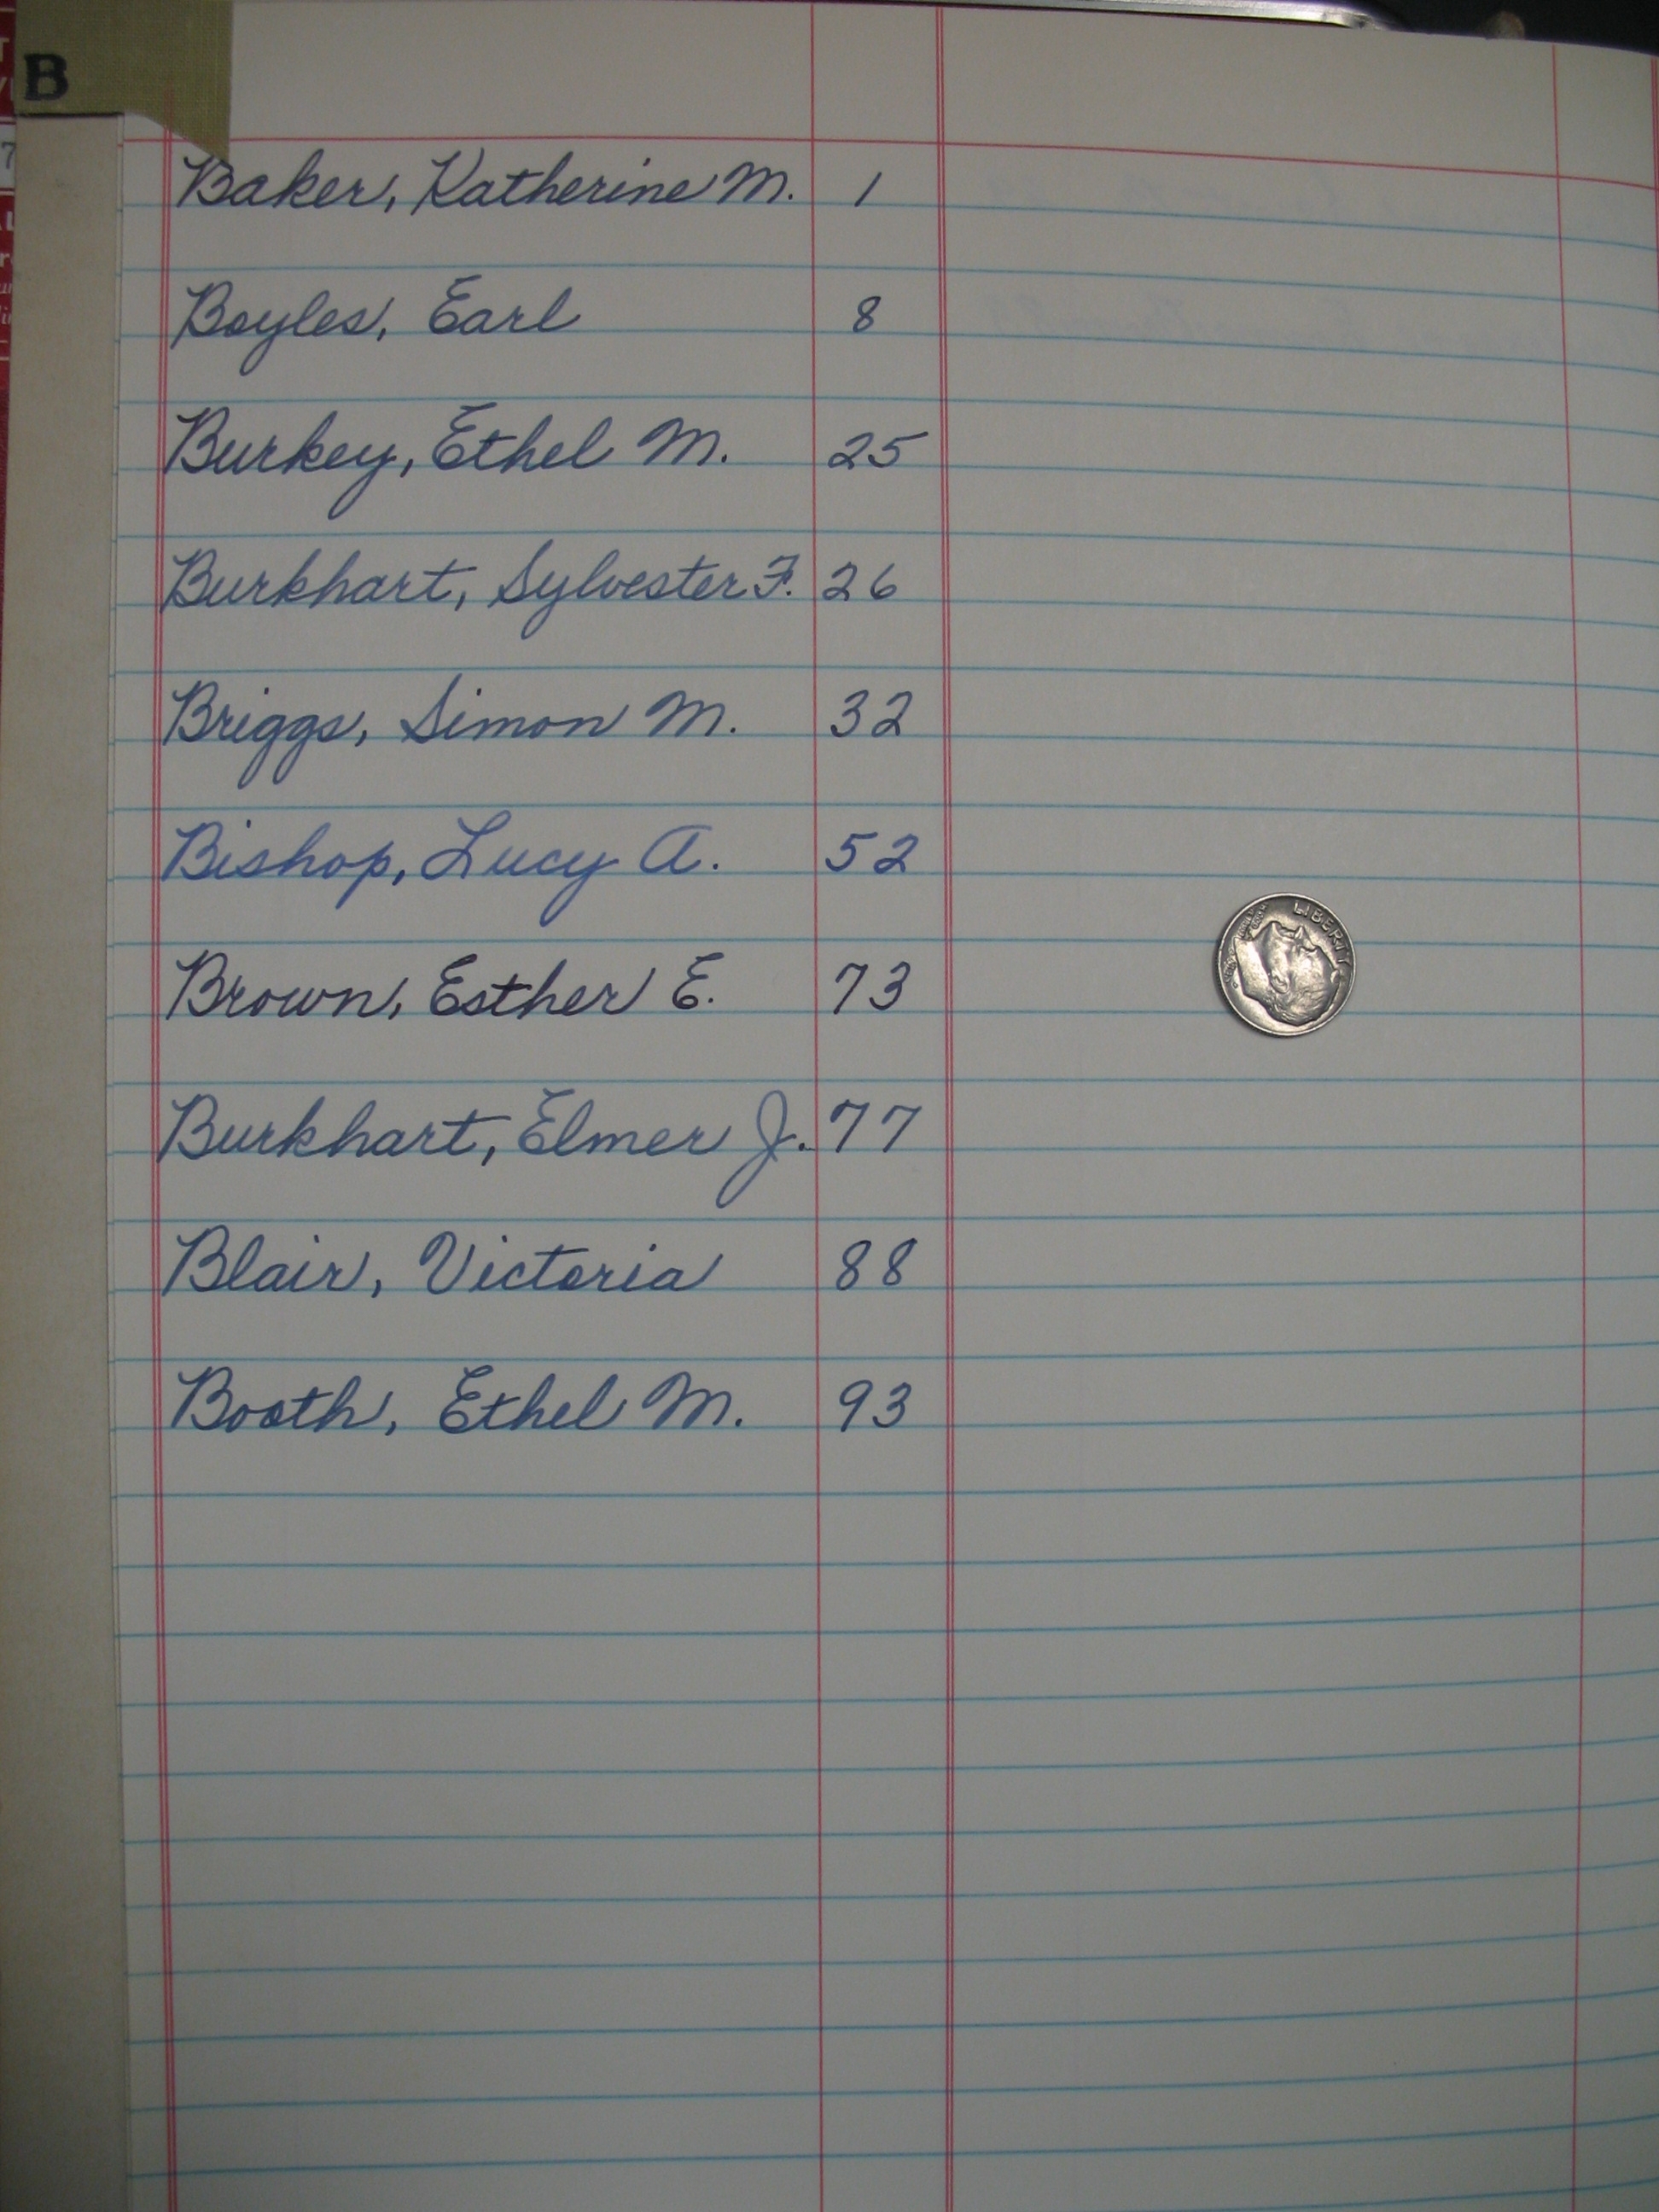 B
Baker, Katherine M. 1
Boyles, Earl 8
Burkey, Ethel M. 25
Burkhart, Sylvester F. 26
Briggs, Simon M. 32
Bishop, Lucy A. 52
LIBERTY
Brown, Esther E. 73
Burkhart, Elmer J. 77
Blair, Victoria 88
Booth, Ethel M. 93